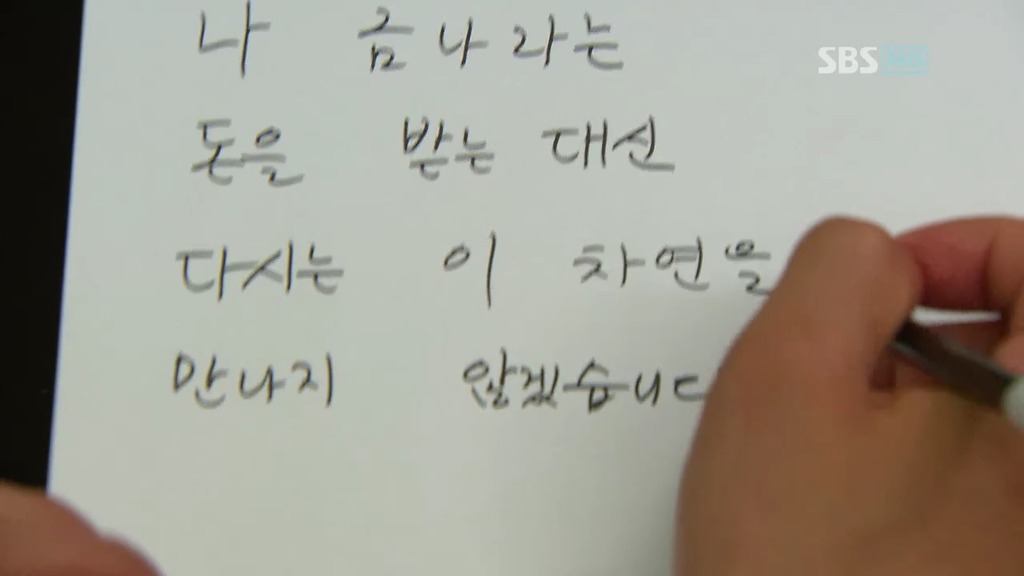 나 금나라는
SBS
돈을 받는 대신
다시는 이 차연을
만나지 않겠습니다